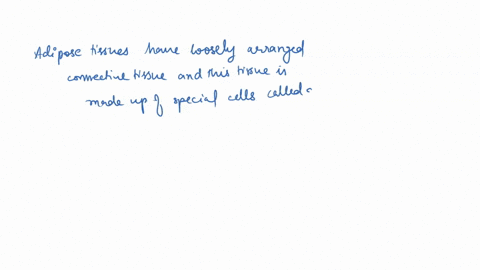 Adipose tissues have loosely arranged
connective tissue and this tissue is
made up of special cells called